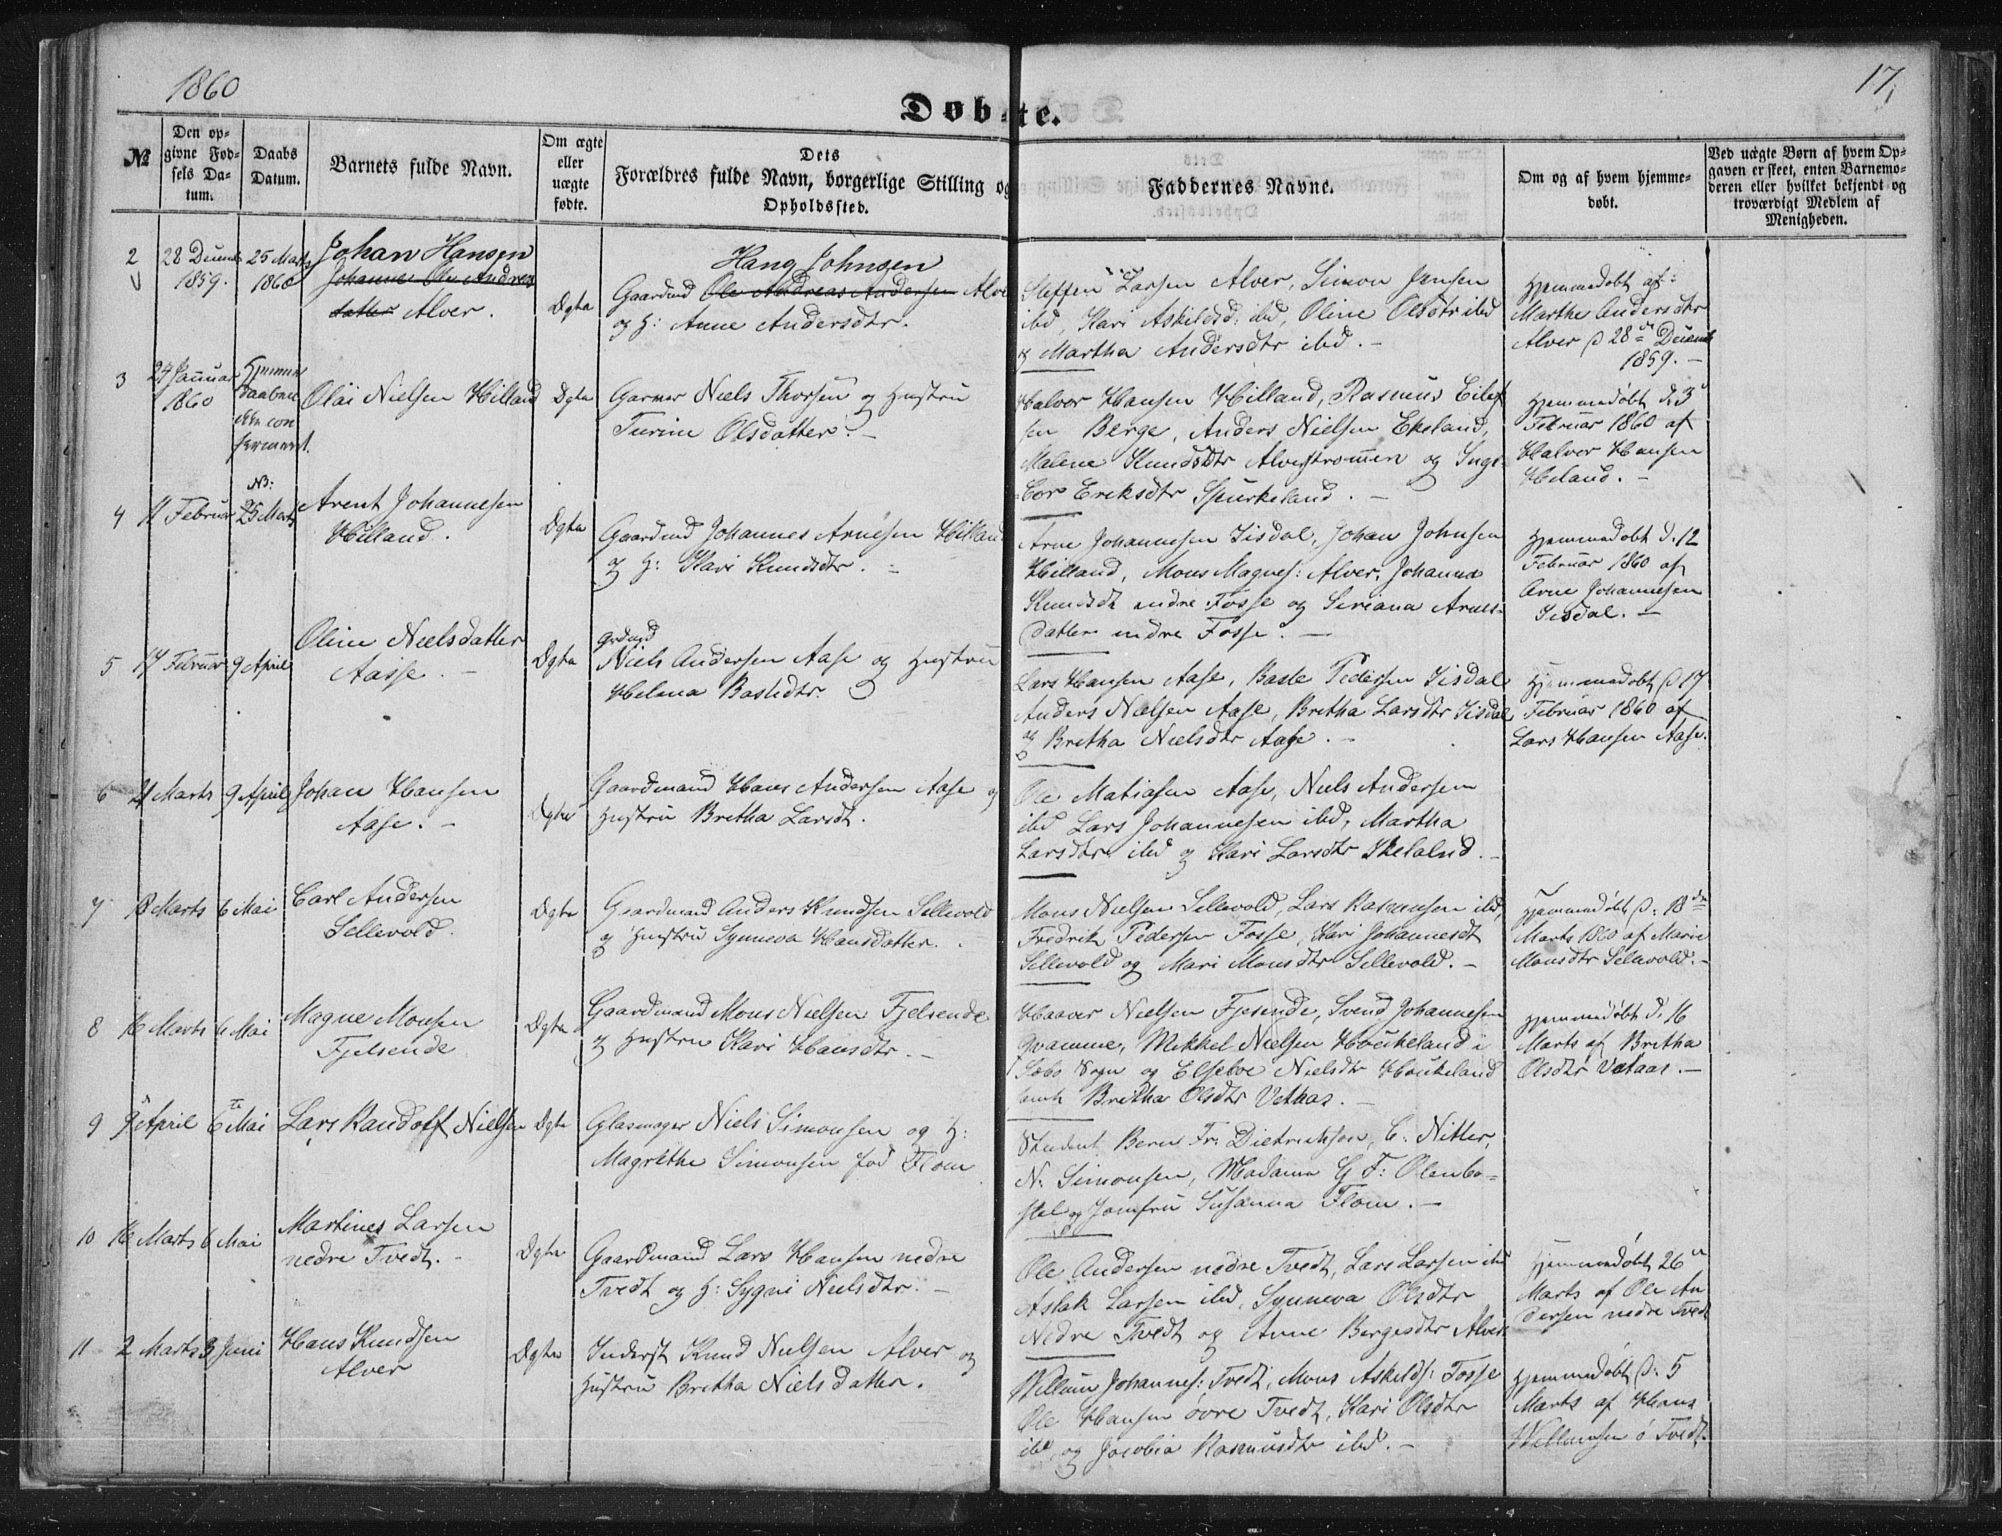 1860
17,
Døbte.
№
Den op-
givne Fød-
sels Da-
tum.
Daabs
Datum.
Barnets fulde Navn.
Om ægte
eller
uægte
fødte.
Dets
Forældres fulde Navn, borgerlige Stilling og
Opholdssted.
Faddernes Navne.
Om og af hvem hjemme-
døbt.
Ved uægte Børn af hvem Op-
gaven er skeet, enten Barnemo-
deren eller hvilket bekjendt og
troværdigt Medlem af
Menigheden.
2
28 Decemb
1859.
25 Marts
1860
Johan Hansen
Johannes Ole Andreas
datter Alver.
Ægte
Hans Johnsen
Gaardmd Ole Andreas Andersen Alver
og H: Anne Andersdtr.
Steffen Larsen Alver, Simon Jensen
ibd, Kari Askildsd: ibd, Oline Olsdtr ibd
og Martha Andersdtr ibd. –
Hjemmedøbt af:
Marthe Andersdtr
Alver d 28de Decemb
1859. –
3
24 Januar
1860
Hjemme
daaben
ikke con
firmeret.
Olai Nielsen Hilland
Ægte
Garver Niels Thorsen og Hustru
Turine Olsdatter. –
Halvor Hansen Hilland, Rasmus Eilef
sen Berge, Anders Nielsen Ekeland,
Malene Knudsdtr Alverstrømen og Inge-
bor Eriksdtr Spurkeland. –
Hjemmedøbt d. 3
Februar 1860 af
Halvor Hansen
Hiland. –
4
11 Februar
NB:
25 Marts
Arent Johannesen
Hilland.
Ægte
Gaardmd Johannes Arnesen Hilland
og H: Kari Knudsdtr. –
Arne Johannesen Iisdal, Johan Johnsen
Hilland, Mons Magnes: Alver, Johanna
Knudsdt nedre Fosse og Siriana Arnes-
datter nedre Fosse. –
Hjemmedøbt d. 12
Februar 1860 af
Arne Johannesen
Iisdal. –
5
17 Februar
9 April
Oline Nielsdatter
Aasse. –
Ægte
Grdmd
Niels Andersen Aase og Hustru
Helena Bastedtr.
Lars Hansen Aase, Baste Pedersen Iisdal
Anders Nielsen Aase, Bretha Larsdtr Iisdal
og Bretha Nielsdtr Aase. –
Hjemmedøbt d 17
Februar 1860 af
Lars Hansen Aase.
6
21 Marts
9 April
Johan Hansen
Aase. –
Ægte
Gaardmand Hans Andersen Aase og
Hustru Bretha Larsdt.
Ole Matiasen Aase, Niels Andersen
ibd Lars Johannesen ibd, Martha
Larsdtr ibd og Kari Larsdtr Ikelalnd. –
7
18 Marts
6 Mai
Carl Andersen
Sellevold.
Ægte
Gaardmand Anders Knudsen Sellevold
og Hustru Synneva Hansdatter.
Mons Nielsen Sellevold, Lars Rasmusen ibd,
Fredrik Pedersen Fosse, Kari Johannesdt
Sellevold og Mari Monsdtr Sellevold. –
Hjemmedøbt d: 18de
Marts 1860 af Marie
Monsdtr Sellevold. –
8
16 Marts
6 Mai
Magne Monsen
Fjelsende
Ægte
Gaardmand Mons Nielsen Fjelsende
og Hustru Kari Hansdtr. –
Haaver Nielsen Fjesende, Svend Johannesen
Qvamme, Mikkel Nielsen Houkeland i
Sæbo Sogn og Elseboe Nielsdtr Houkeland
samt Bretha Olsdtr Vetaas. –
Hjemmedøbt d. 16
Marts af Bretha
Olsdtr Vetaas. –
9
9 April
6te Mai
Lars Randolf Nielsen
Ægte
Glasmager Niels Simonsen og H:
Magrethe Simonsen fød Flom
Student Bern Fr: Dietrichson, C. Nitter,
N. Simonsen, Madame G F: Olenbo-
stel og Jomfru Susanna Flom. –
10
16 Marts
6 Mai
Martines Larsen
nedre Tvedt. –
Ægte
Gaardmand Lars Hansen nedre
Tvedt og H: Sygni Nielsdtr. –
Ole Andersen nedre Tvedt, Lars Larsen ibd
Aslak Larsen ibd, Synneva Olsdtr
Nedre Tvedt og Anne Bergesdtr Alver.
Hjemmedøbt 26de
Marts af Ole An
dersen nedre Tvedt
11
2 Marts
3 Juni
Hans Knudsen
Alver
Ægte
Inderst Knud Nielsen Alver og
Hustru Bretha Nielsdatter.
Willum Johannes: Tvedt, Mons Askilds: Fosse
Ole Hansen øvre Tvedt, Kari Olsdtr
ibd, og Jacobia Rasmusdtr ibd. –
Hjemmedøbt d: 5
Marts af Hans
Willumsen ø Tvedt.